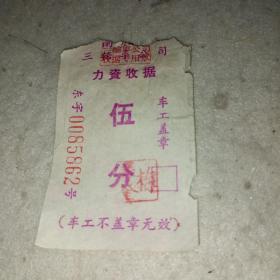 三轮车公司
力资收据
东字0085862号
伍分
车工盖章
(车工不盖章无效)